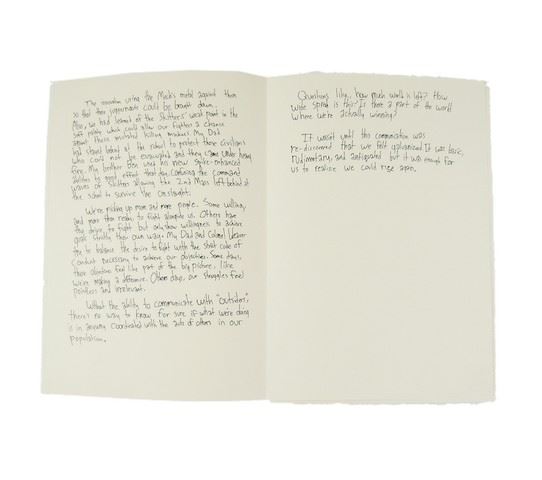 The innovation using the Mech's metal against them
so that their supernauts could be brought down.
Also, we had learned of the Skitters' weak point in the
soft palate which could allow our fighters a chance
against these misshaped killing machines. My Dad
had stayed behind at the school to protect these civilians
who could not be evacuated and they came under heavy
fire. My brother Ben used his new spike-enhanced
abilities to good effect that day, confusing the command
waves of Skitters allowing the 2nd Mass left behind at
the school to survive the onslaught.
We're picking up more and more people. Some willing,
and more than ready, to fight alongside us. Others have
the desire to fight but only show willingness to achieve
goals strictly their own way. My Dad and Colonel Weaver
try to balance the desire to fight with the strict code of
conduct necessary to achieve our objectives. Some days,
these objectives feel like part of the big picture, like
we're making a difference. Other days, our struggles feel
pointless and irrelevant.
Without the ability to communicate with "outsiders,"
there's no way to know for sure if what we're doing
is in anyway coordinated with the acts of others in our
population.
Questions like, how much world is left? How
wide spread is this? Is there a part of the world
where we're actually winning?
It wasn't until this communication was
re-discovered that we felt galvanized. It was basic,
rudimentary, and antiquated but it was enough for
us to realize we could rise again.